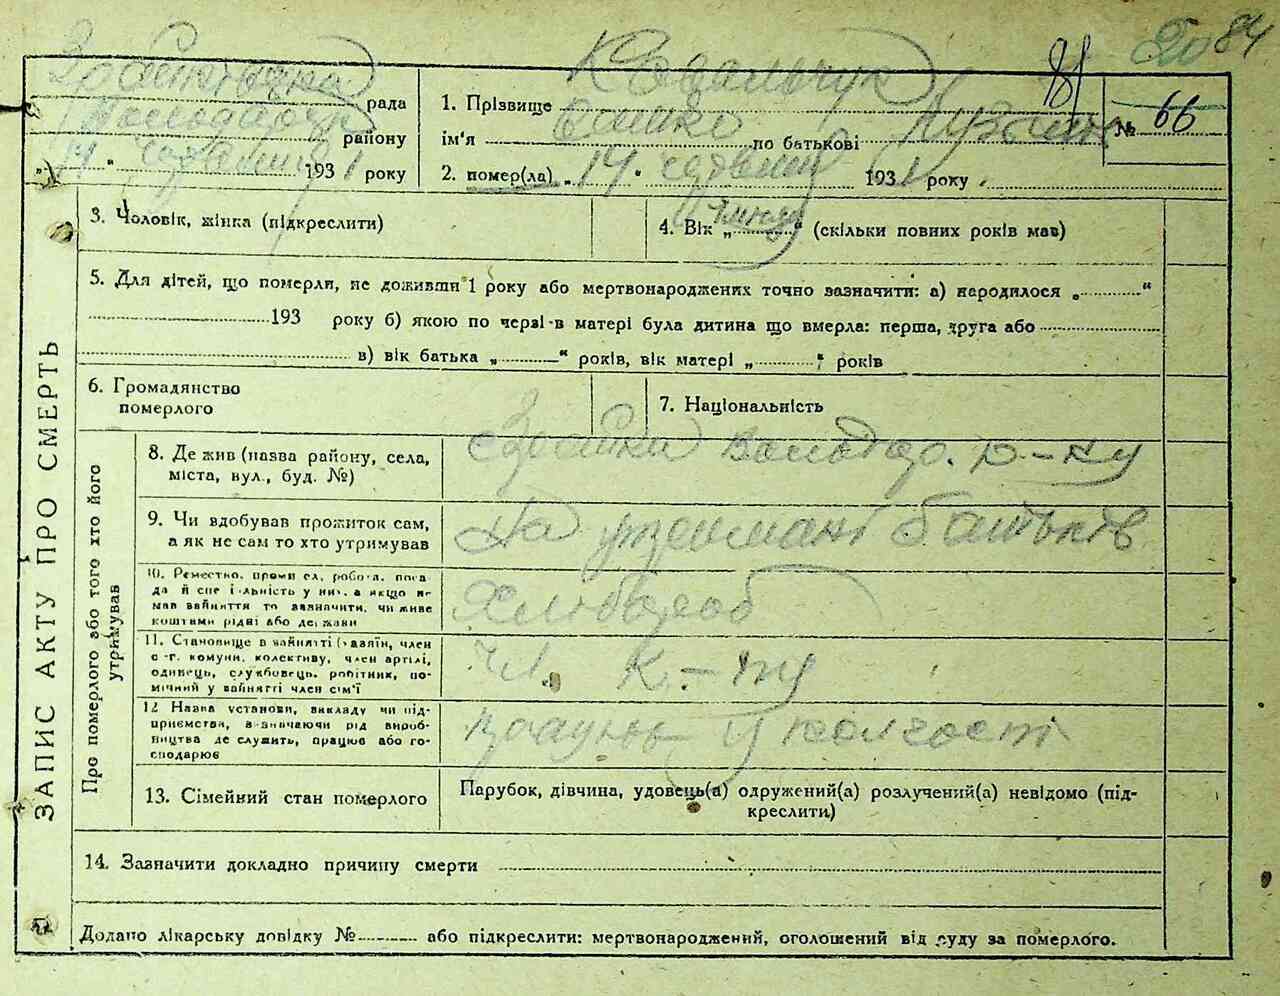 81 20 84
рада
району
„14“ червня 1931 року
1. Прізвище Ковальчук
ім'я по батькові
2. помер(ла) „14“ червня 1931 року
№ 66
ЗАПИС АКТУ ПРО СМЕРТЬ
3. Чоловік, жінка (підкреслити)
4. Вік „ “ (скільки повних років мав)
5. Для дітей, що померли, не доживши 1 року або мертвонароджених точно зазначити: а) народилося „ “
193 року б) якою по черзі в матері була дитина що вмерла: перша, друга або
в) вік батька „ “ років, вік матері „ “ років
6. Громадянство
померлого
7. Національність
Про померлого або того хто його
утримував
8. Де жив (назва району, села,
міста, вул., буд. №)
р-ну
9. Чи вдобував прожиток сам,
а як не сам то хто утримував
На утриманні батьків
10. Ремество, промисел, робота, поса
да й спеціальність у них, а якщо не
мав зайняття то зазначити, чи живе
коштами рідні або держави
Хлібороб
11. Становище в зайнятті (хазяїн, член
с.-г. комуни, колективу, член артілі,
одинець, службовець, робітник, по-
мічний у зайнятті член сім'ї
Чл. к-ту
12 Назва установи, викладу чи під-
приємства, взначаючи рід вироб-
ництва де служить, працює або го-
сподарює
працює у колгоспі
13. Сімейний стан померлого
Парубок, дівчина, удовець(а) одружений(а) розлучений(а) невідомо (під-
креслити)
14. Зазначити докладно причину смерти
Додано лікарську довідку № або підкреслити: мертвонароджений, оголошений від суду за померлого.